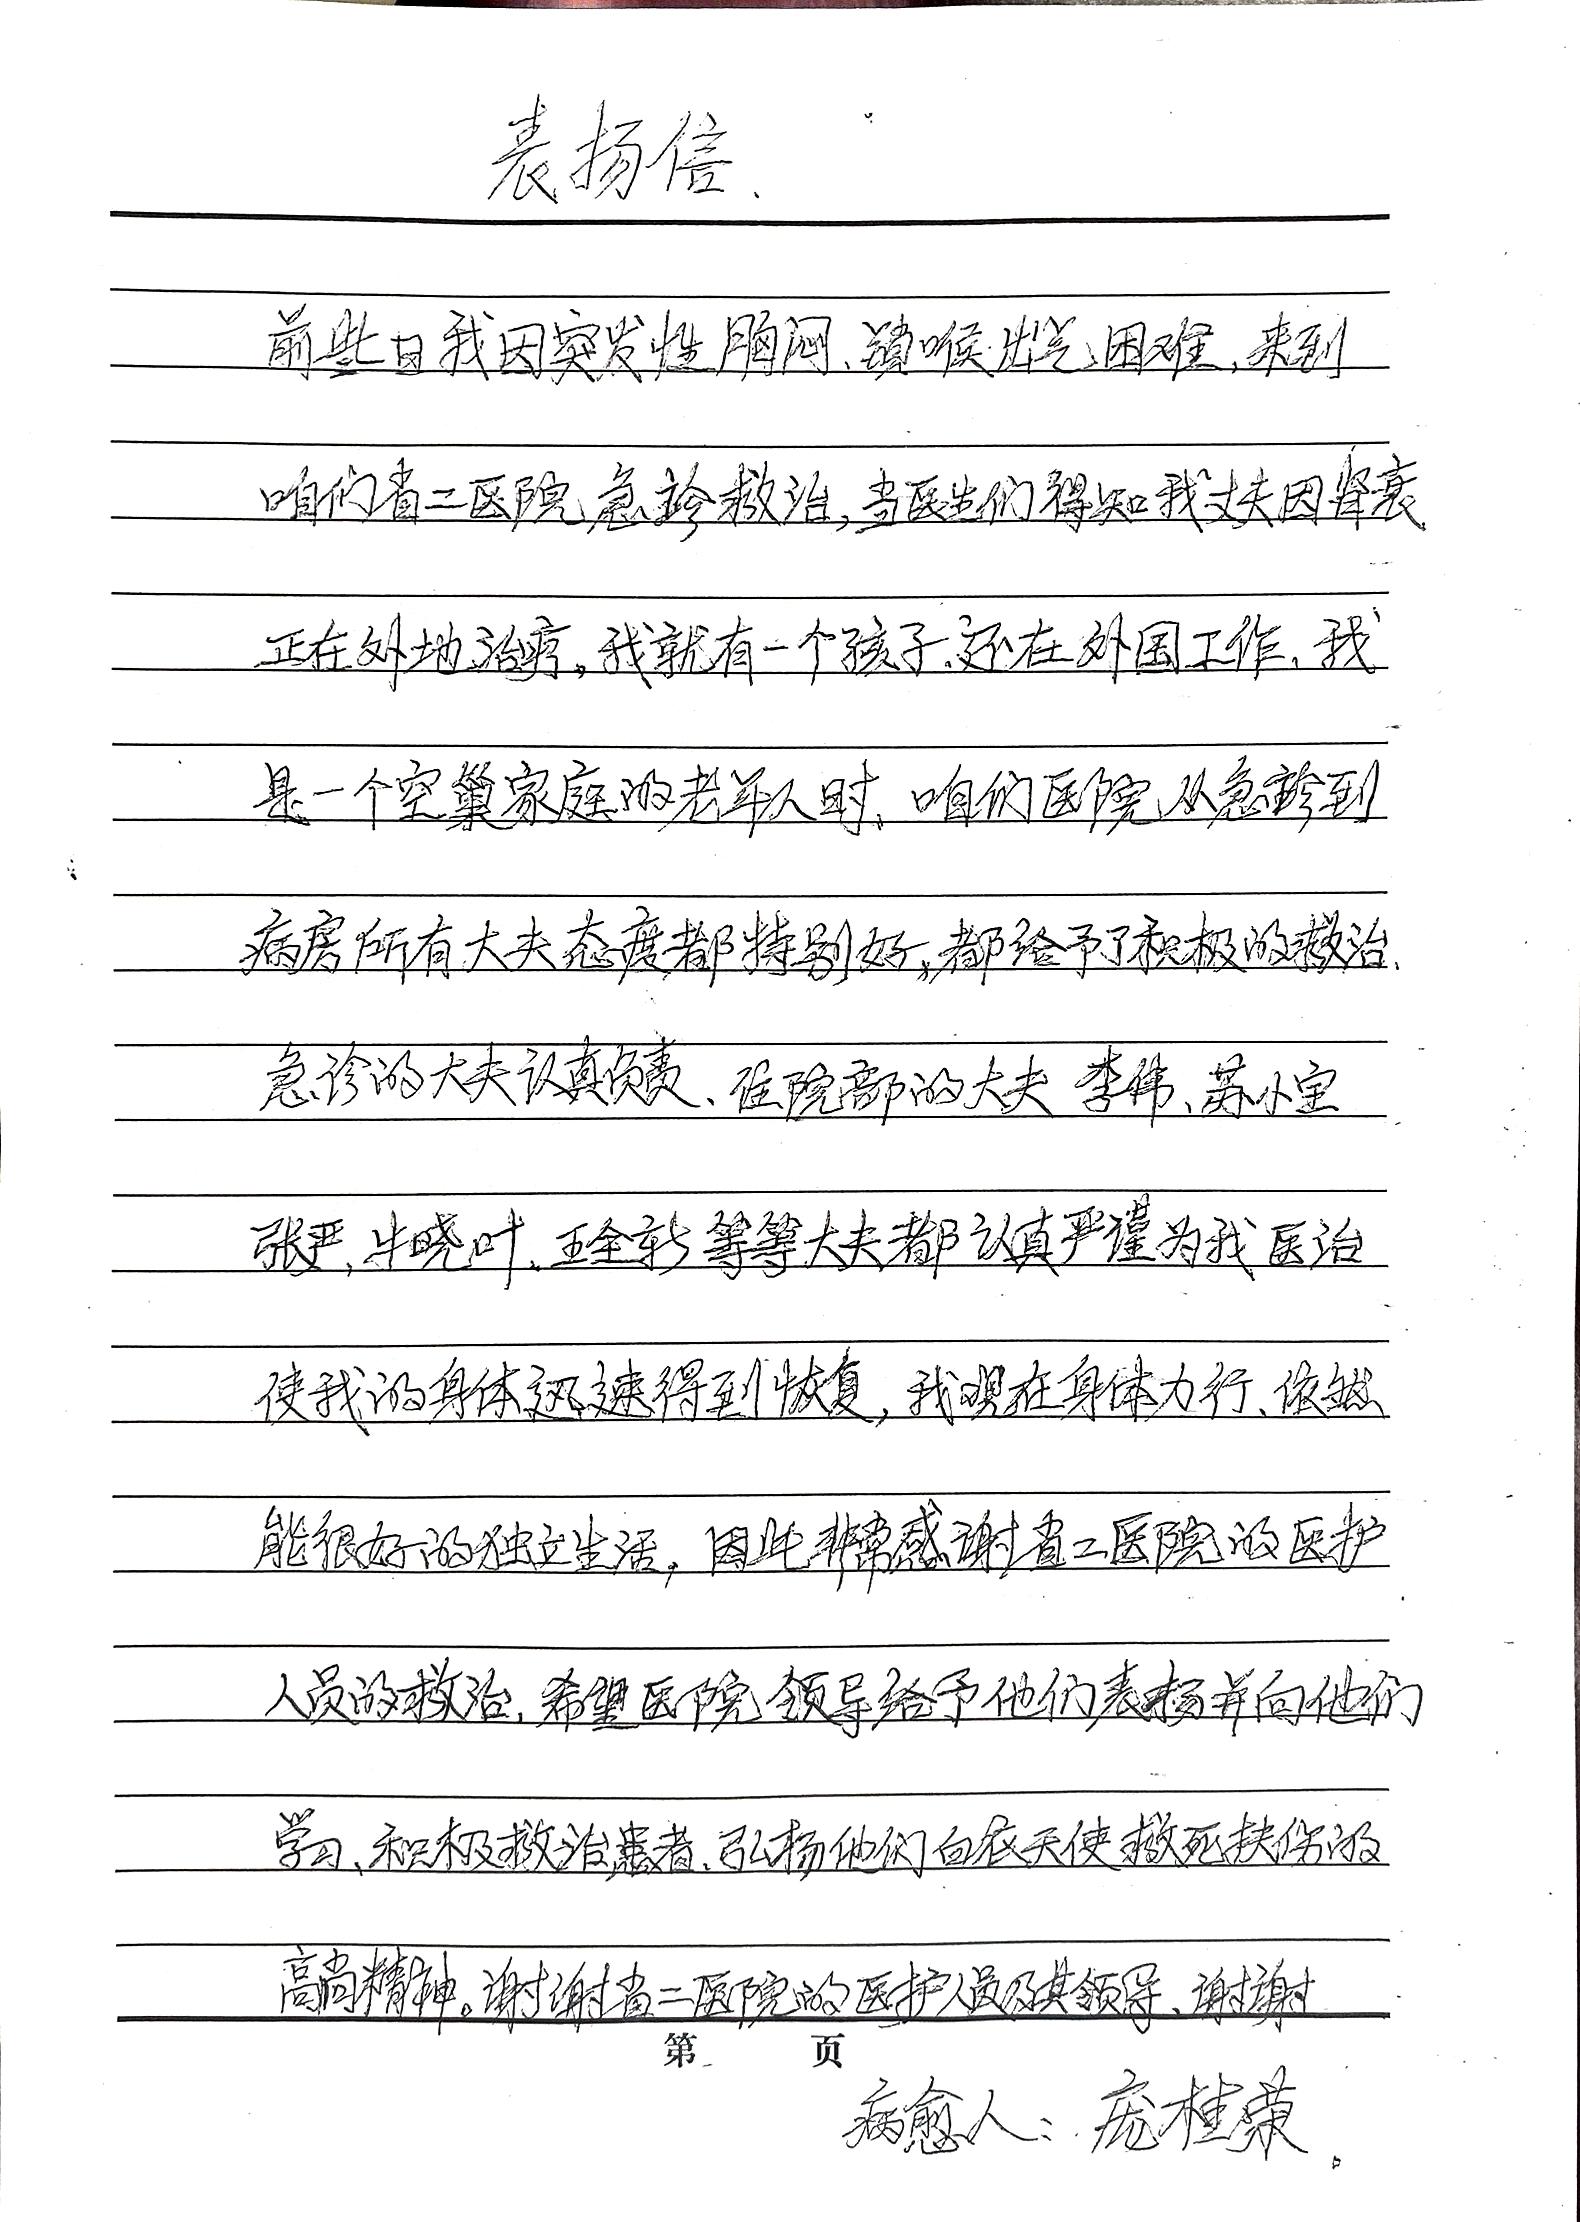 表扬信、
前些日我因突发性胸闷、锁喉出气困难,来到
咱们省二医院急诊救治,当医生们得知我丈夫因肾衰
正在外地治疗,我就有一个孩子、还在外国工作、我
是一个空巢家庭的老年人时、咱们医院从急诊到
病房所有大夫态度都特别好,都给予了积极的救治、
急诊的大夫认真负责、住院部的大夫 李伟、苏小宝
张严,牛晓叶、王全新等等大夫都认真严谨为我医治
使我的身体迅速得到恢复,我现在身体力行、依然
能很好的独立生活,因此非常感谢省二医院的医护
人员的救治,希望医院领导给予他们表扬并向他们
学习、积极救治患者、弘扬他们白衣天使救死扶伤的
高尚精神。谢谢省二医院的医护人员及其领导、谢谢
第 页
病愈人:庞桂荣。